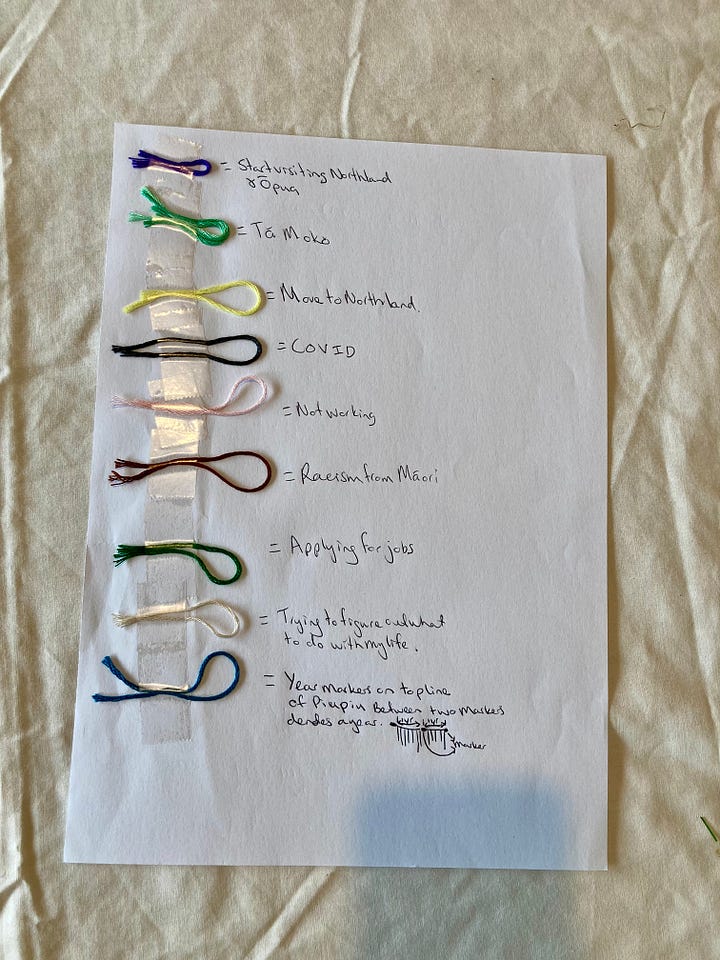 = Start visiting Northland
rōpua
= Tā Moko
= Move to Northland.
= COVID
= Not working
= Racism from Māori
= Applying for jobs
= Trying to figure out what
to do with my life.
= Year markers on top line
of Piupiu Between two markers
denotes a year.
marker